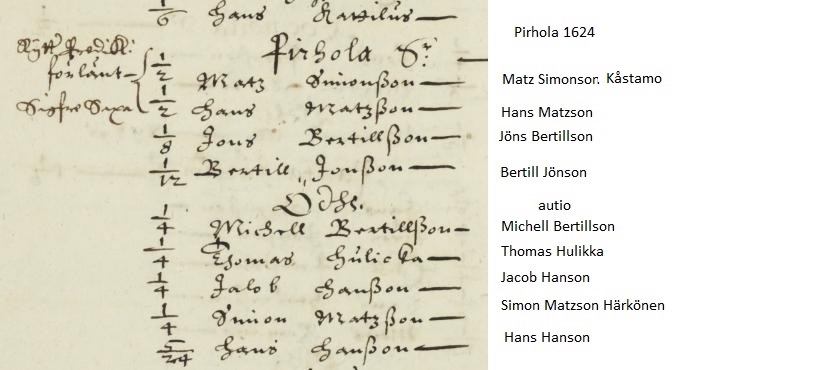 1/6 Hans Kattilus
Pirhola Sn:
Rytt: Fredik:
förlänt
1/2 Matz Simonßon
Sigfre Saxa
1/2 Hans Matzßon
1/8 Jöns Bertillßon
1/12 Bertill Jönßon
Ödhe.
1/4 Michell Bertillßon
1/4 Thomas Hulicka
1/4 Jacob Hanßon
1/4 Simon Matzßon
5/24 Hans Hanßon
Pirhola 1624
Matz Simonsor. Kåstamo
Hans Matzson
Jöns Bertillson
Bertill Jönson
autio
Michell Bertillson
Thomas Hulikka
Jacob Hanson
Simon Matzson Härkönen
Hans Hanson